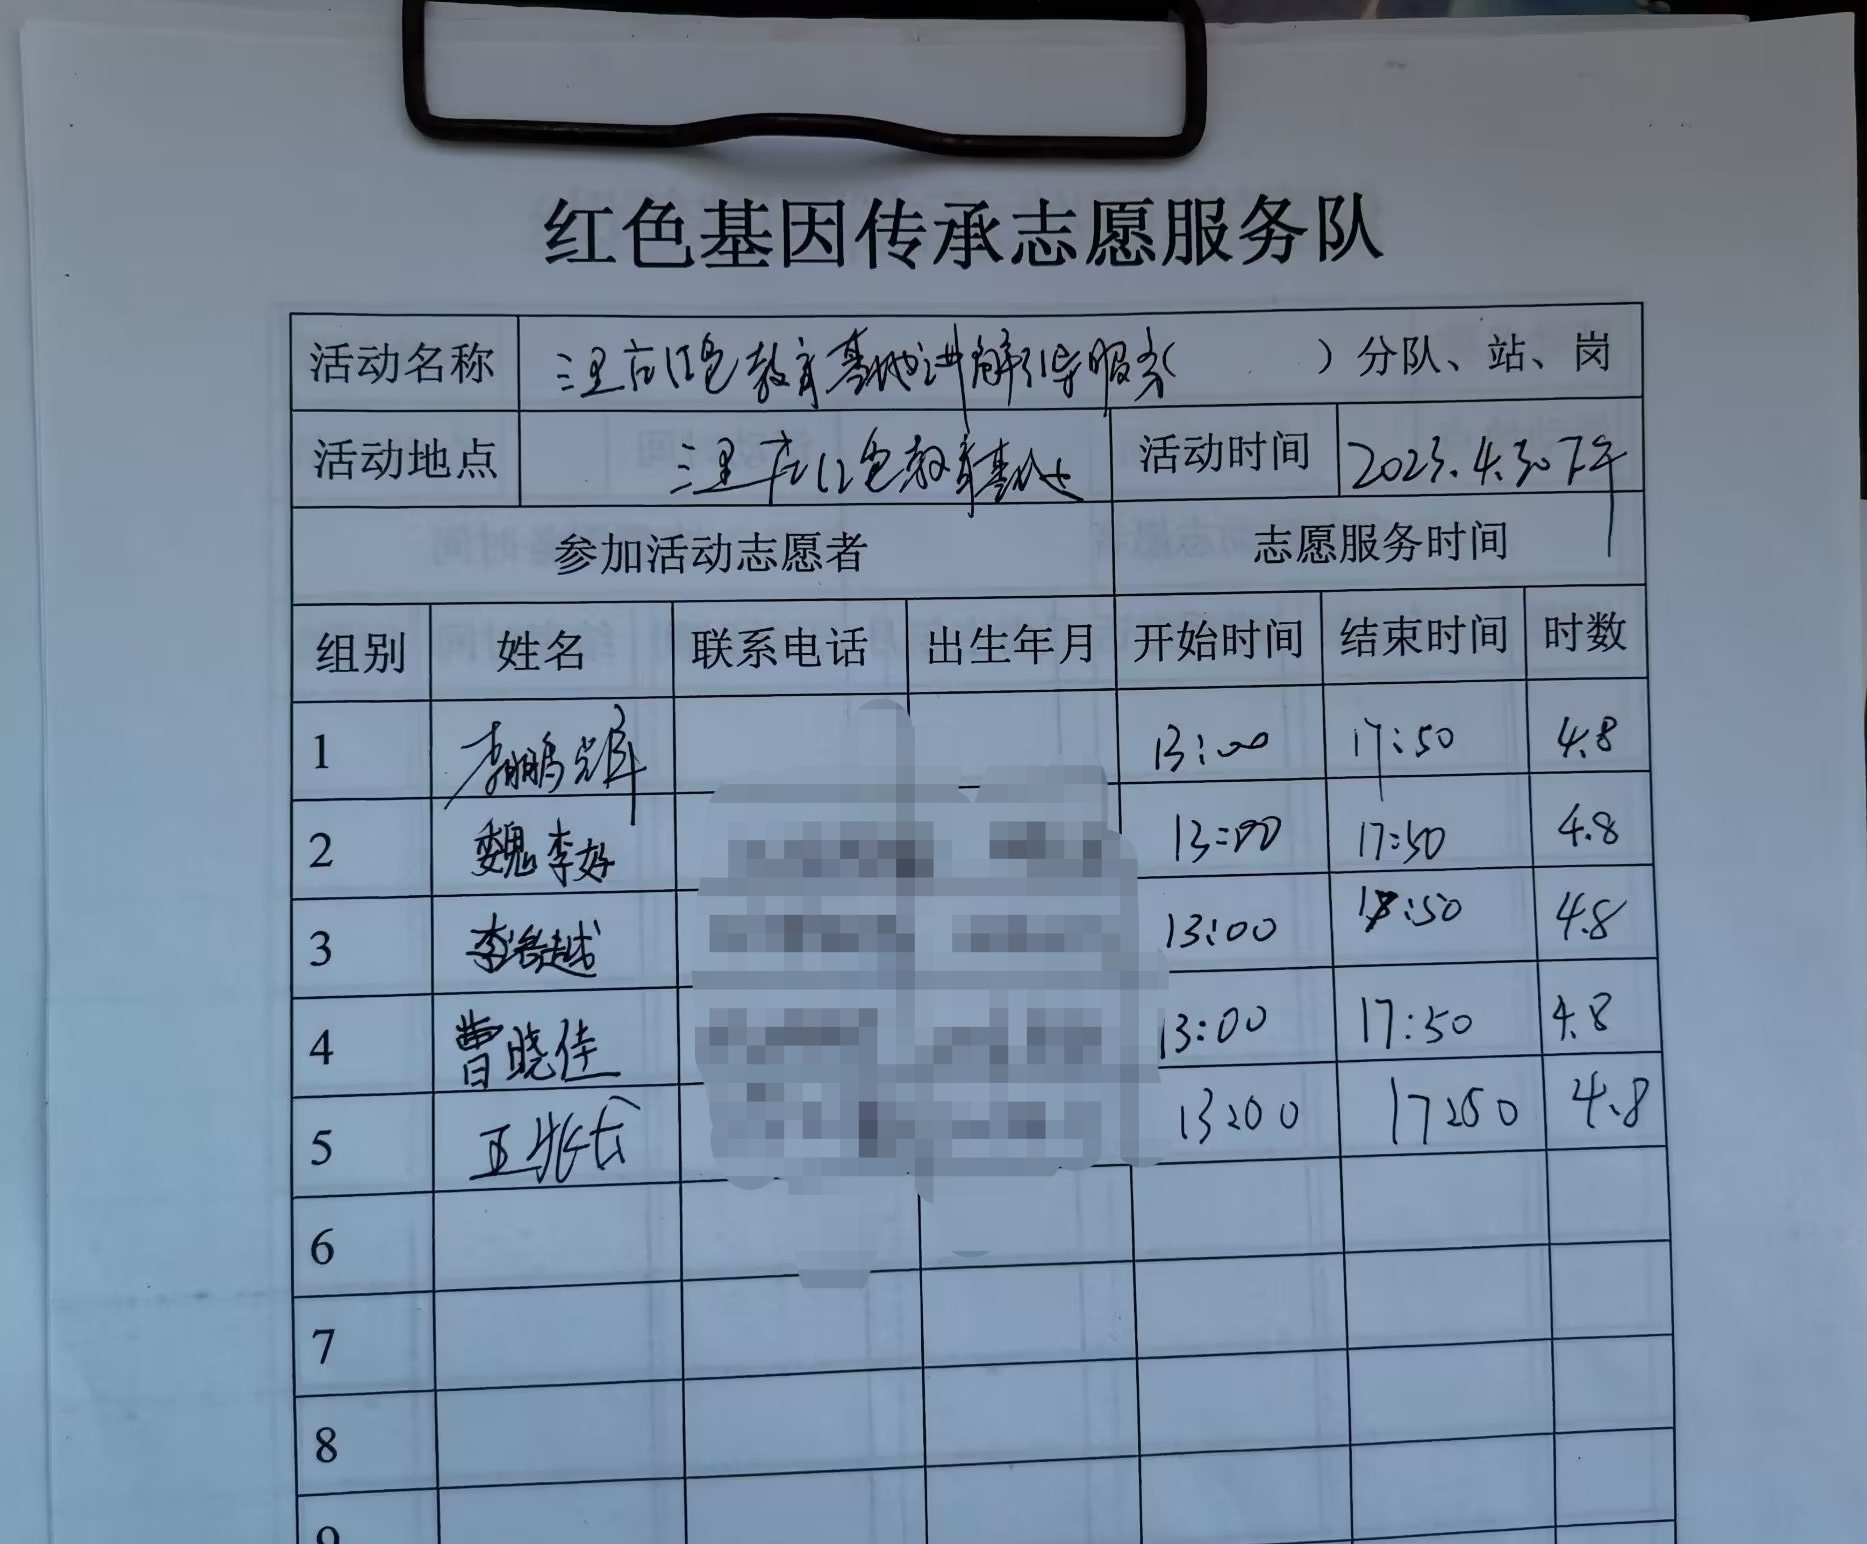 红色基因传承志愿服务队
活动名称 三里庄红色教育基地讲解引导服务( )分队、站、岗
活动地点 三里庄红色教育基地 活动时间 2023.4.30下午
参加活动志愿者 志愿服务时间
组别 姓名 联系电话 出生年月 开始时间 结束时间 时数
1 李鹏辉 13:00 17:50 4.8
2 魏李好 13:00 17:50 4.8
3 13:00 17:50 4.8
4 曹晓佳 13:00 17:50 4.8
5 13:00 17:50 4.8
6
7
8
9